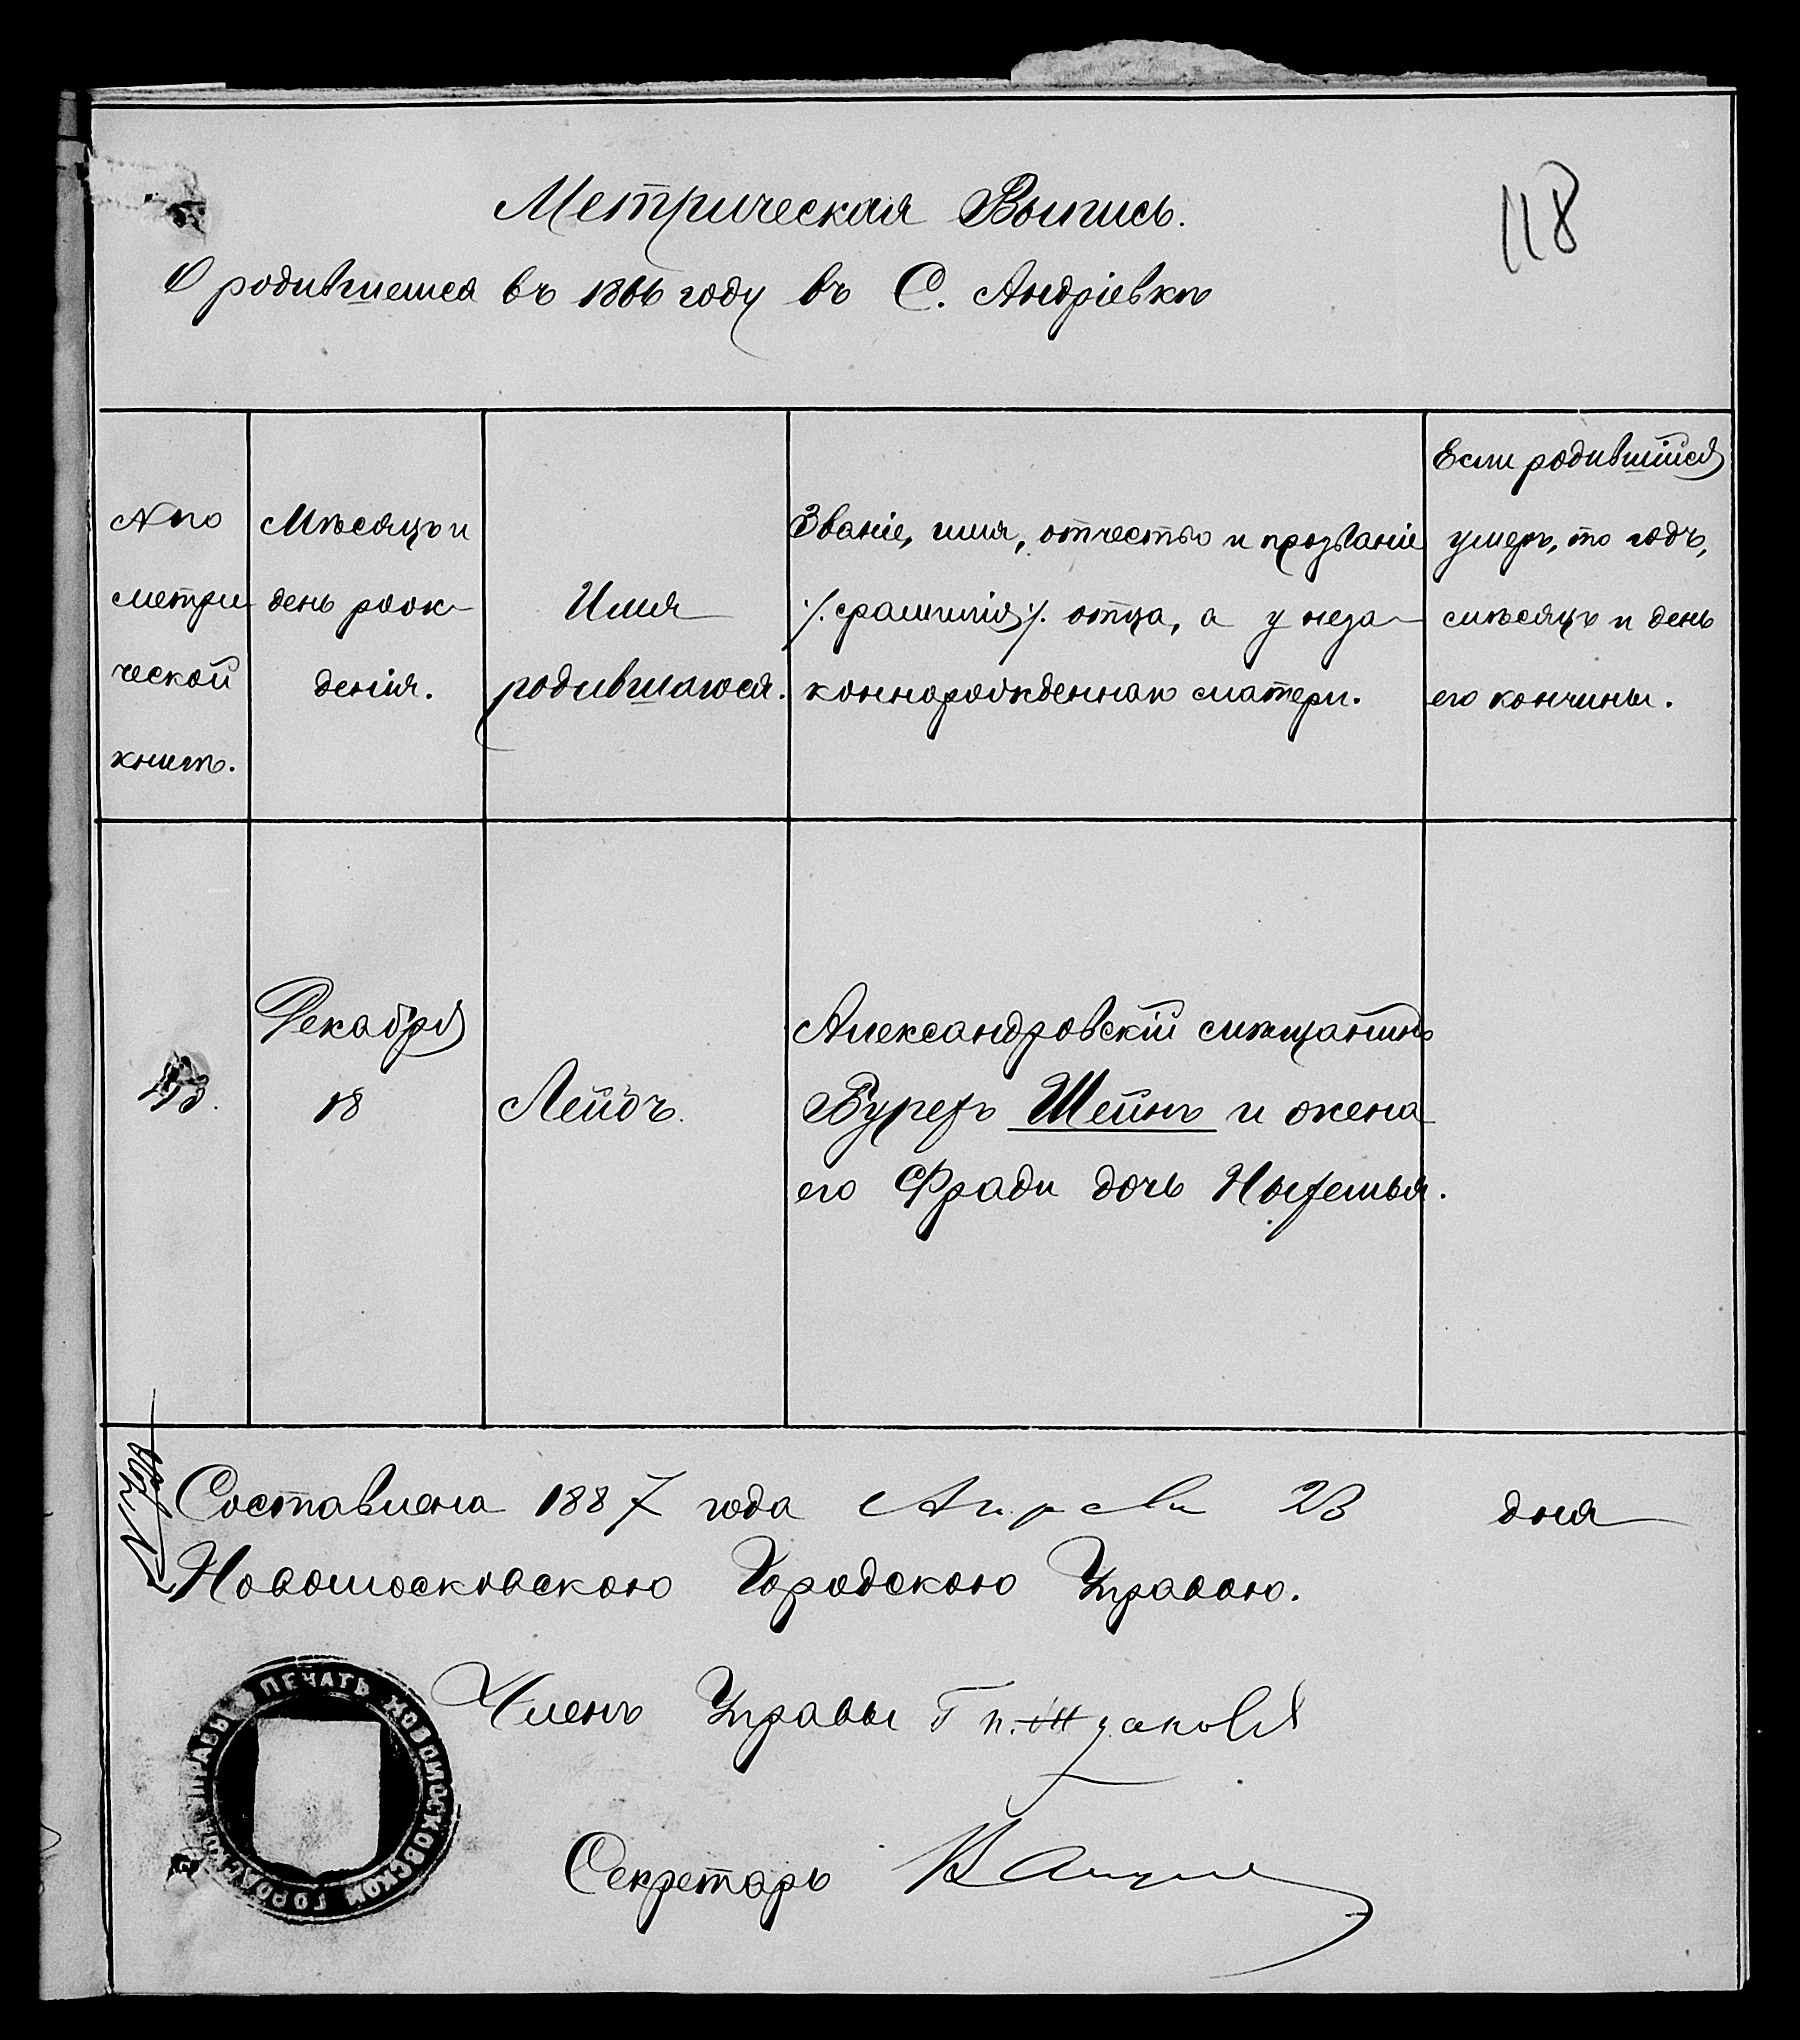 Метрическая Выпись.
118
О родившемся въ 1866 году въ С. Андріевкѣ
№ по
метри
ческой
книгѣ.
Мѣсяцъ и
день рож-
денія.
Имя
родившагося.
Званіе, имя, отчество и прозваніе
/фамилія/ отца, а у неза-
коннорожденнаго матери.
Если родившійся
умеръ, то годъ,
мѣсяцъ и день
его кончины.
Декабря
18
Лейбъ.
Александровскій мѣщанинъ
Шейнъ и жена
его Фради дочь
Составлена 1887 года Апрѣля 23 дня
Новомосковскою Городскою Управою.
Членъ Управы
Секретарь
ПЕЧАТЬ НОВОМОСКОВСКОЙ ГОРОДСКОЙ УПРАВЫ